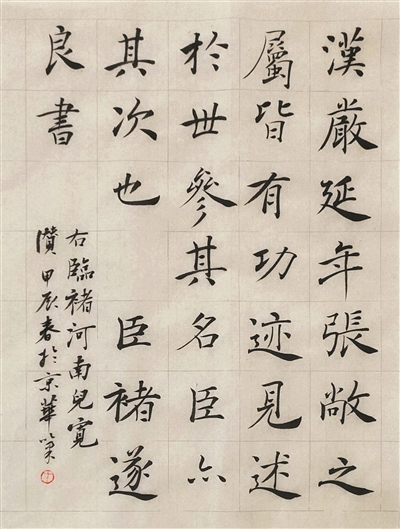 漢嚴延年張敞之
屬皆有功迹見述
於世參其名臣亦
其次也 臣褚遂
良書
右臨褚河南兒寬
讚甲辰春於京華